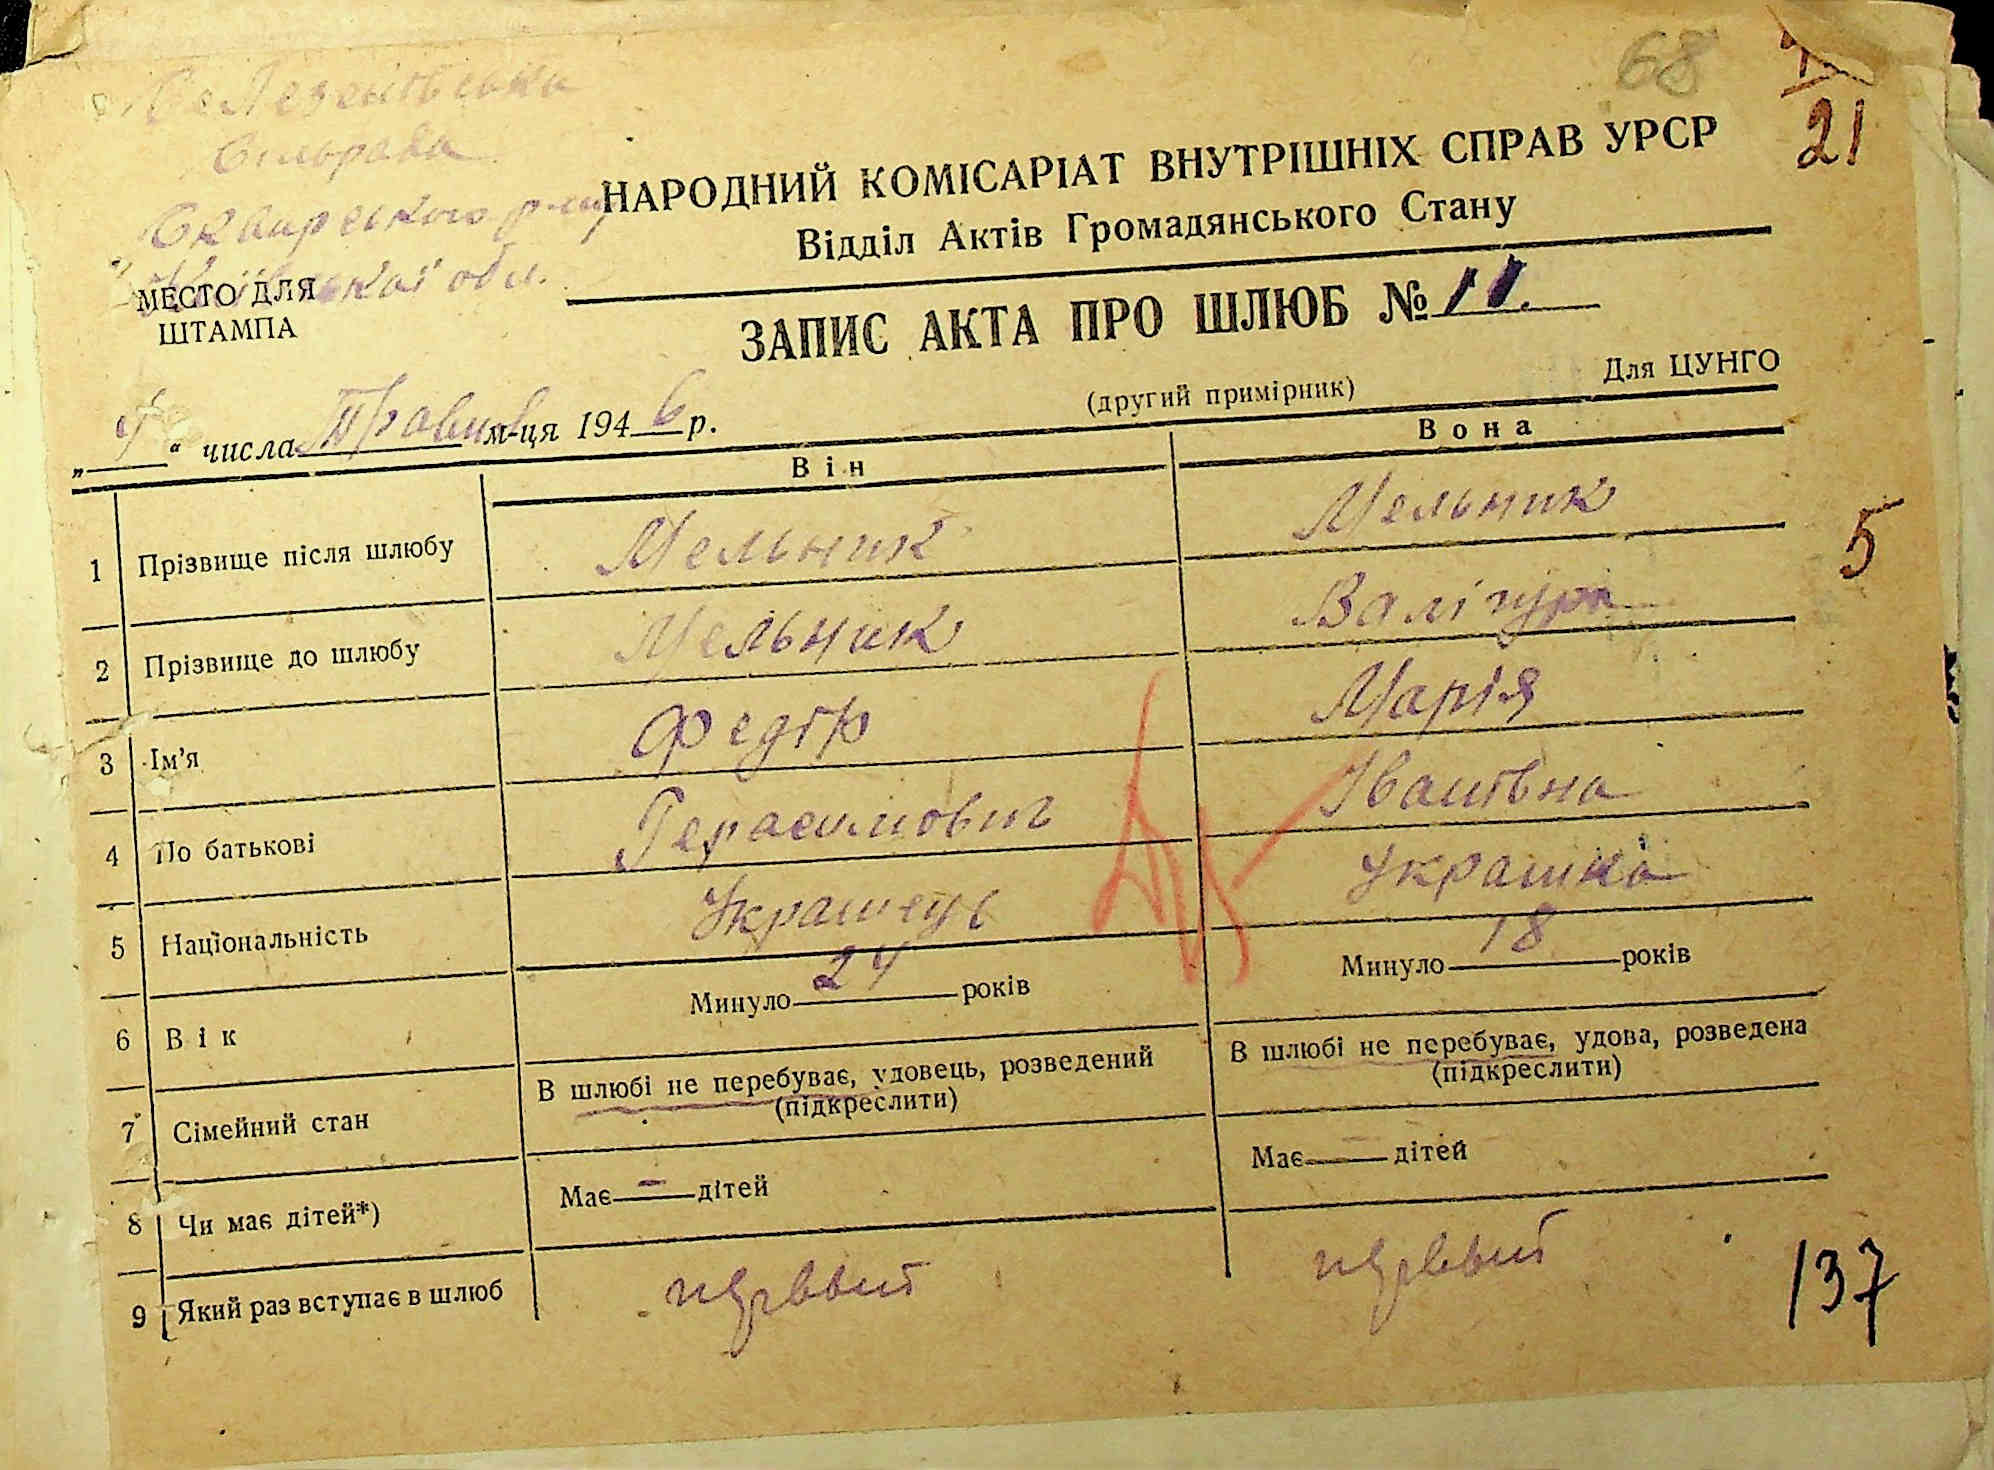 68
21
Сільрада
Сквирського р-ну
Київської обл.
НАРОДНИЙ КОМІСАРІАТ ВНУТРІШНІХ СПРАВ УРСР
Відділ Актів Громадянського Стану
МЕСТО ДЛЯ
ШТАМПА
ЗАПИС АКТА ПРО ШЛЮБ № 11.
(другий примірник) Для ЦУНГО
„ “ числа Травня м-ця 1946 р.
Він Вона
1 Прізвище після шлюбу Мельник Мельник
5
2 Прізвище до шлюбу Мельник Валігура
3 Ім'я Федір Марія
4 По батькові Герасимович Іванівна
5 Національність Українець Українка
6 Вік Минуло 24 років Минуло 18 років
7 Сімейний стан В шлюбі не перебуває, удовець, розведений В шлюбі не перебуває, удова, розведена
(підкреслити) (підкреслити)
8 Чи має дітей*) Має — дітей Має — дітей
9 Який раз вступає в шлюб первий первий
137